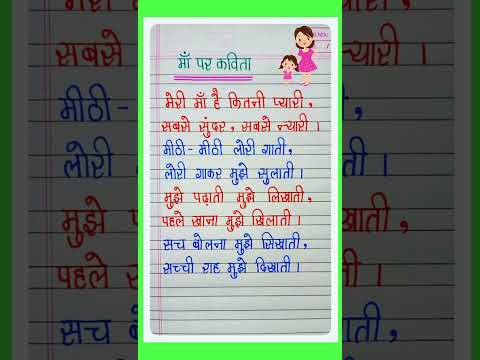 माँ पर कविता
मेरी माँ है कितनी प्यारी,
सबसे सुंदर, सबसे न्यारी ।
मीठी-मीठी लोरी गाती,
लोरी गाकर मुझे सुलाती ।
मुझे पढ़ाती मुझे लिखाती,
पहले खाना मुझे खिलाती ।
सच बोलना मुझे सिखाती,
सच्ची राह मुझे दिखाती ।